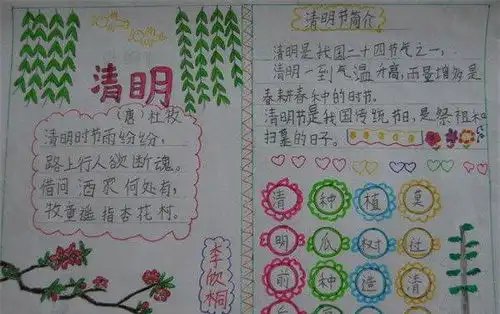 清明
(唐)杜牧
清明时节雨纷纷，
路上行人欲断魂。
借问酒家何处有，
牧童遥指杏花村。
李欣桐
清明节简介
清明是我国二十四节气之一，
清明一到气温升高，雨量增多是
春耕春种的时节。
清明节是我国传统节日，是祭祖和
扫墓的日子。
清 种 植 莫
明 瓜 树 过
前 种 造 清